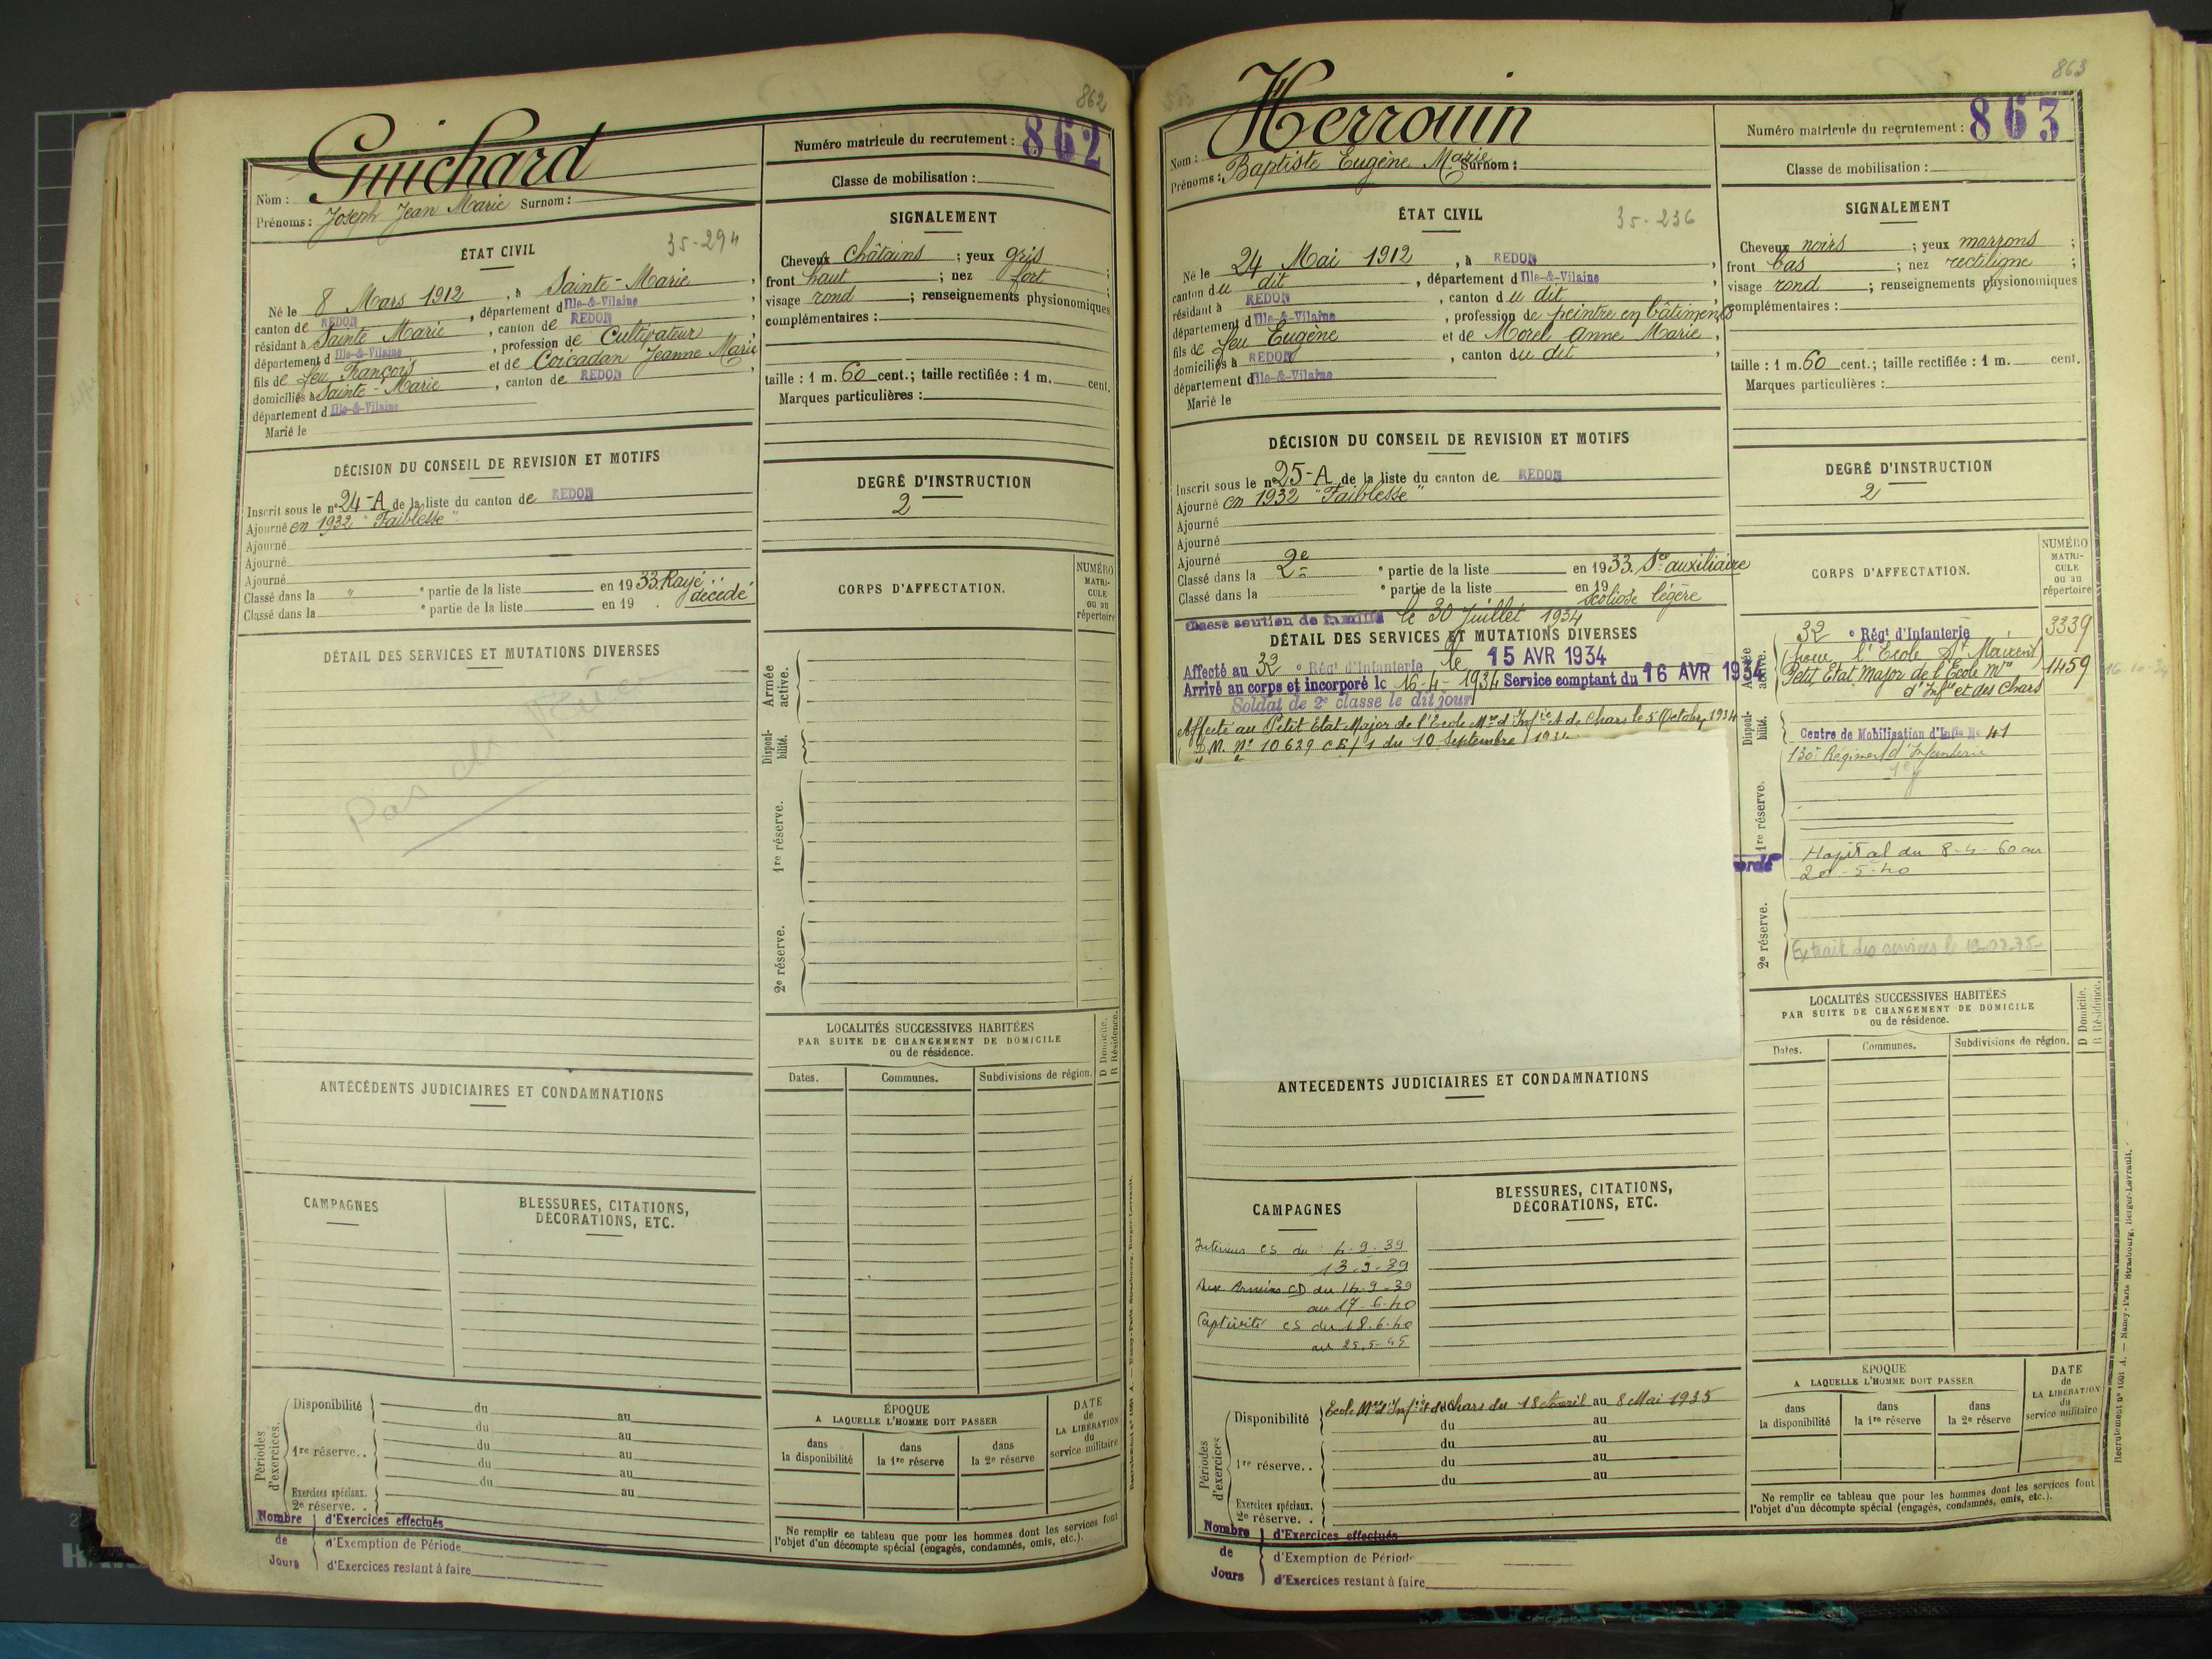 862
Guichard
Nom :
Prénoms : Joseph Jean Marie Surnom :
Numéro matricule du recrutement : 862
Classe de mobilisation :
ÉTAT CIVIL
35-294
Né le 8 Mars 1912, à Sainte-Marie,
canton de REDON, département d Ille-&-Vilaine,
résidant à Sainte Marie, canton de REDON,
département d Ille-&-Vilaine, profession de Cultivateur,
fils de feu François et de Coicadan Jeanne Marie,
domiciliés à Sainte-Marie, canton de REDON,
département d Ille-&-Vilaine
Marié le
SIGNALEMENT
Cheveux châtains ; yeux gris ;
front haut ; nez fort ;
visage rond ; renseignements physionomiques
complémentaires :
taille : 1 m. 60 cent. ; taille rectifiée : 1 m. cent.
Marques particulières :
DÉCISION DU CONSEIL DE REVISION ET MOTIFS
Inscrit sous le n° 24-A de la liste du canton de REDON
Ajourné en 1932 "Faiblesse"
Ajourné
Ajourné
Ajourné
Classé dans la " e partie de la liste en 1933. Rayé :
décédé
Classé dans la e partie de la liste en 19 .
DEGRÉ D'INSTRUCTION
2
DÉTAIL DES SERVICES ET MUTATIONS DIVERSES
Pas de
CORPS D'AFFECTATION.
NUMÉRO
MATRI-
CULE
ou au
répertoire
Armée
active.
Disponi-
bilité.
1re réserve.
2e réserve.
LOCALITÉS SUCCESSIVES HABITÉES
PAR SUITE DE CHANGEMENT DE DOMICILE
ou de résidence.
D Domicile.
R Résidence.
Dates.
Communes.
Subdivisions de région.
ANTÉCÉDENTS JUDICIAIRES ET CONDAMNATIONS
CAMPAGNES
BLESSURES, CITATIONS,
DÉCORATIONS, ETC.
Périodes
d'exercices.
Disponibilité
du au
du au
1re réserve. .
du au
du au
du au
Exercices spéciaux.
2e réserve. .
Nombre
de
Jours
d'Exercices effectués
d'Exemption de Période
d'Exercices restant à faire
ÉPOQUE
A LAQUELLE L'HOMME DOIT PASSER
dans
la disponibilité
dans
la 1re réserve
dans
la 2e réserve
DATE
de
LA LIBÉRATION
du
service militaire
Ne remplir ce tableau que pour les hommes dont les services font
l'objet d'un décompte spécial (engagés, condamnés, omis, etc.).
863
Herrouin
Nom :
Prénoms : Baptiste Eugène Marie Surnom :
Numéro matricule du recrutement : 863
Classe de mobilisation :
ÉTAT CIVIL
35-236
Né le 24 Mai 1912, à REDON,
canton du dit, département d Ille-&-Vilaine
résidant à REDON, canton du dit,
département d Ille-&-Vilaine, profession de peintre en bâtiments
fils de feu Eugène et de Morel Anne Marie,
domiciliés à REDON, canton du dit,
département d Ille-&-Vilaine
Marié le
SIGNALEMENT
Cheveux noirs ; yeux marrons ;
front bas ; nez rectiligne ;
visage rond ; renseignements physionomiques
complémentaires :
taille : 1 m. 60 cent. ; taille rectifiée : 1 m. cent.
Marques particulières :
DÉCISION DU CONSEIL DE REVISION ET MOTIFS
Inscrit sous le n° 25-A de la liste du canton de REDON
Ajourné en 1932 "Faiblesse"
Ajourné
Ajourné
Ajourné
Classé dans la 2e e partie de la liste en 1933. Sce auxiliaire
Classé dans la e partie de la liste en 19 Scoliose légère
Classé soutien de famille le 30 Juillet 1934
DEGRÉ D'INSTRUCTION
2
DÉTAIL DES SERVICES ET MUTATIONS DIVERSES
Affecté au 32 e Régt d'Infanterie le 15 AVR 1934
Arrivé au corps et incorporé le 16-4-1934 Service comptant du 16 AVR 1934
Soldat de 2e classe le dit jour
Affecté au Petit Etat Major de l'Ecole Mre d'Infie et de Chars le 5 Octobre 1934
D.M. N° 10629 CE/1 du 10 Septembre 1934
CORPS D'AFFECTATION.
NUMÉRO
MATRI-
CULE
ou au
répertoire
Armée
active.
32 e Régt d'Infanterie 3339
(pour l'Ecole St Maixent)
Petit Etat Major de l'Ecole Mre 1459
d'Infie et des Chars
Disponi-
bilité.
Centre de Mobilisation d'Infie No 41
130e Régiment d'Infanterie
1re réserve.
Hopital du 8-4-60 au
20-5-40
2e réserve.
Extrait des services le
LOCALITÉS SUCCESSIVES HABITÉES
PAR SUITE DE CHANGEMENT DE DOMICILE
ou de résidence.
D Domicile.
R Résidence.
Dates.
Communes.
Subdivisions de région.
ANTÉCÉDENTS JUDICIAIRES ET CONDAMNATIONS
CAMPAGNES
Intérieur CS du 4.9.39
13-9-39
Aux Armées CD du 14.9-39
au 17-6-40
Captivité CS du 18.6.40
au 25.5-45
BLESSURES, CITATIONS,
DÉCORATIONS, ETC.
Périodes
d'exercices
Disponibilité
Ecole Mre d'Infie et de Chars du 18 Avril au 8 Mai 1935
du au
1re réserve. .
du au
du au
du au
Exercices spéciaux.
2e réserve. .
Nombre
de
Jours
d'Exercices effectués
d'Exemption de Période
d'Exercices restant à faire
ÉPOQUE
A LAQUELLE L'HOMME DOIT PASSER
dans
la disponibilité
dans
la 1re réserve
dans
la 2e réserve
DATE
de
LA LIBÉRATION
du
service militaire
Ne remplir ce tableau que pour les hommes dont les services font
l'objet d'un décompte spécial (engagés, condamnés, omis, etc.).
Recrutement n° 1001 A. — Nancy-Paris Strasbourg, Berger-Levrault.